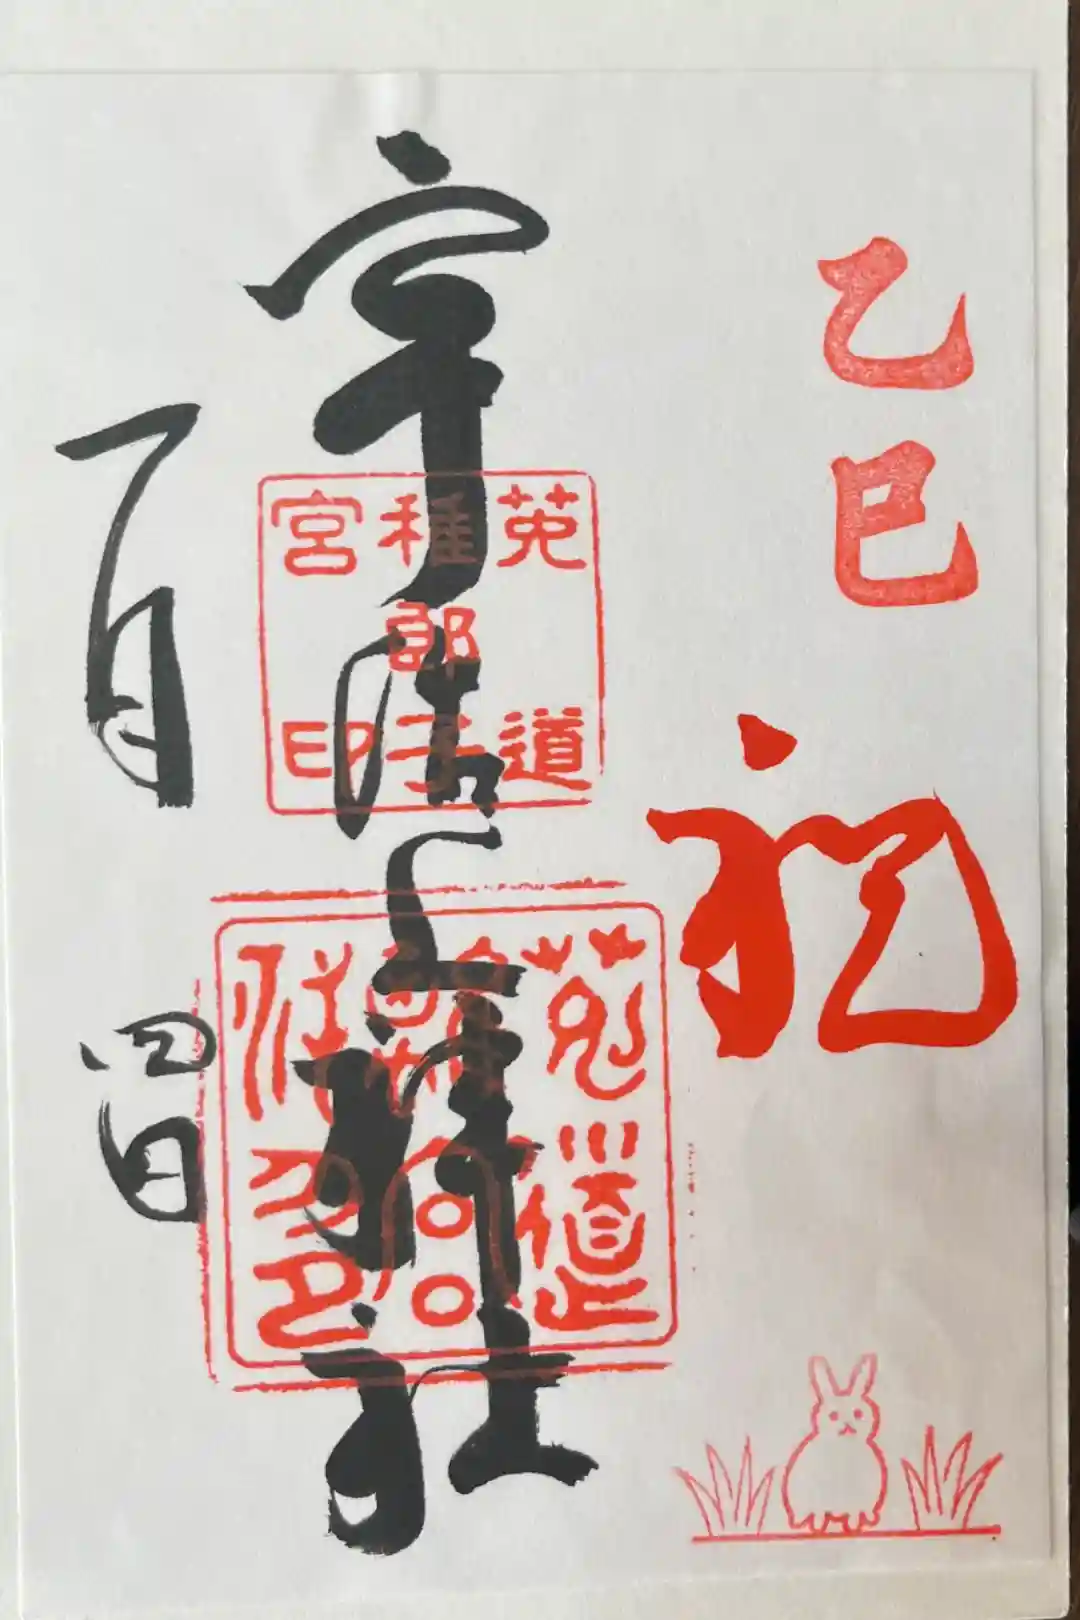 乙巳
祝
宇治上神社
菟道
稚郎子
宮印
菟道
離宮
一月
四日